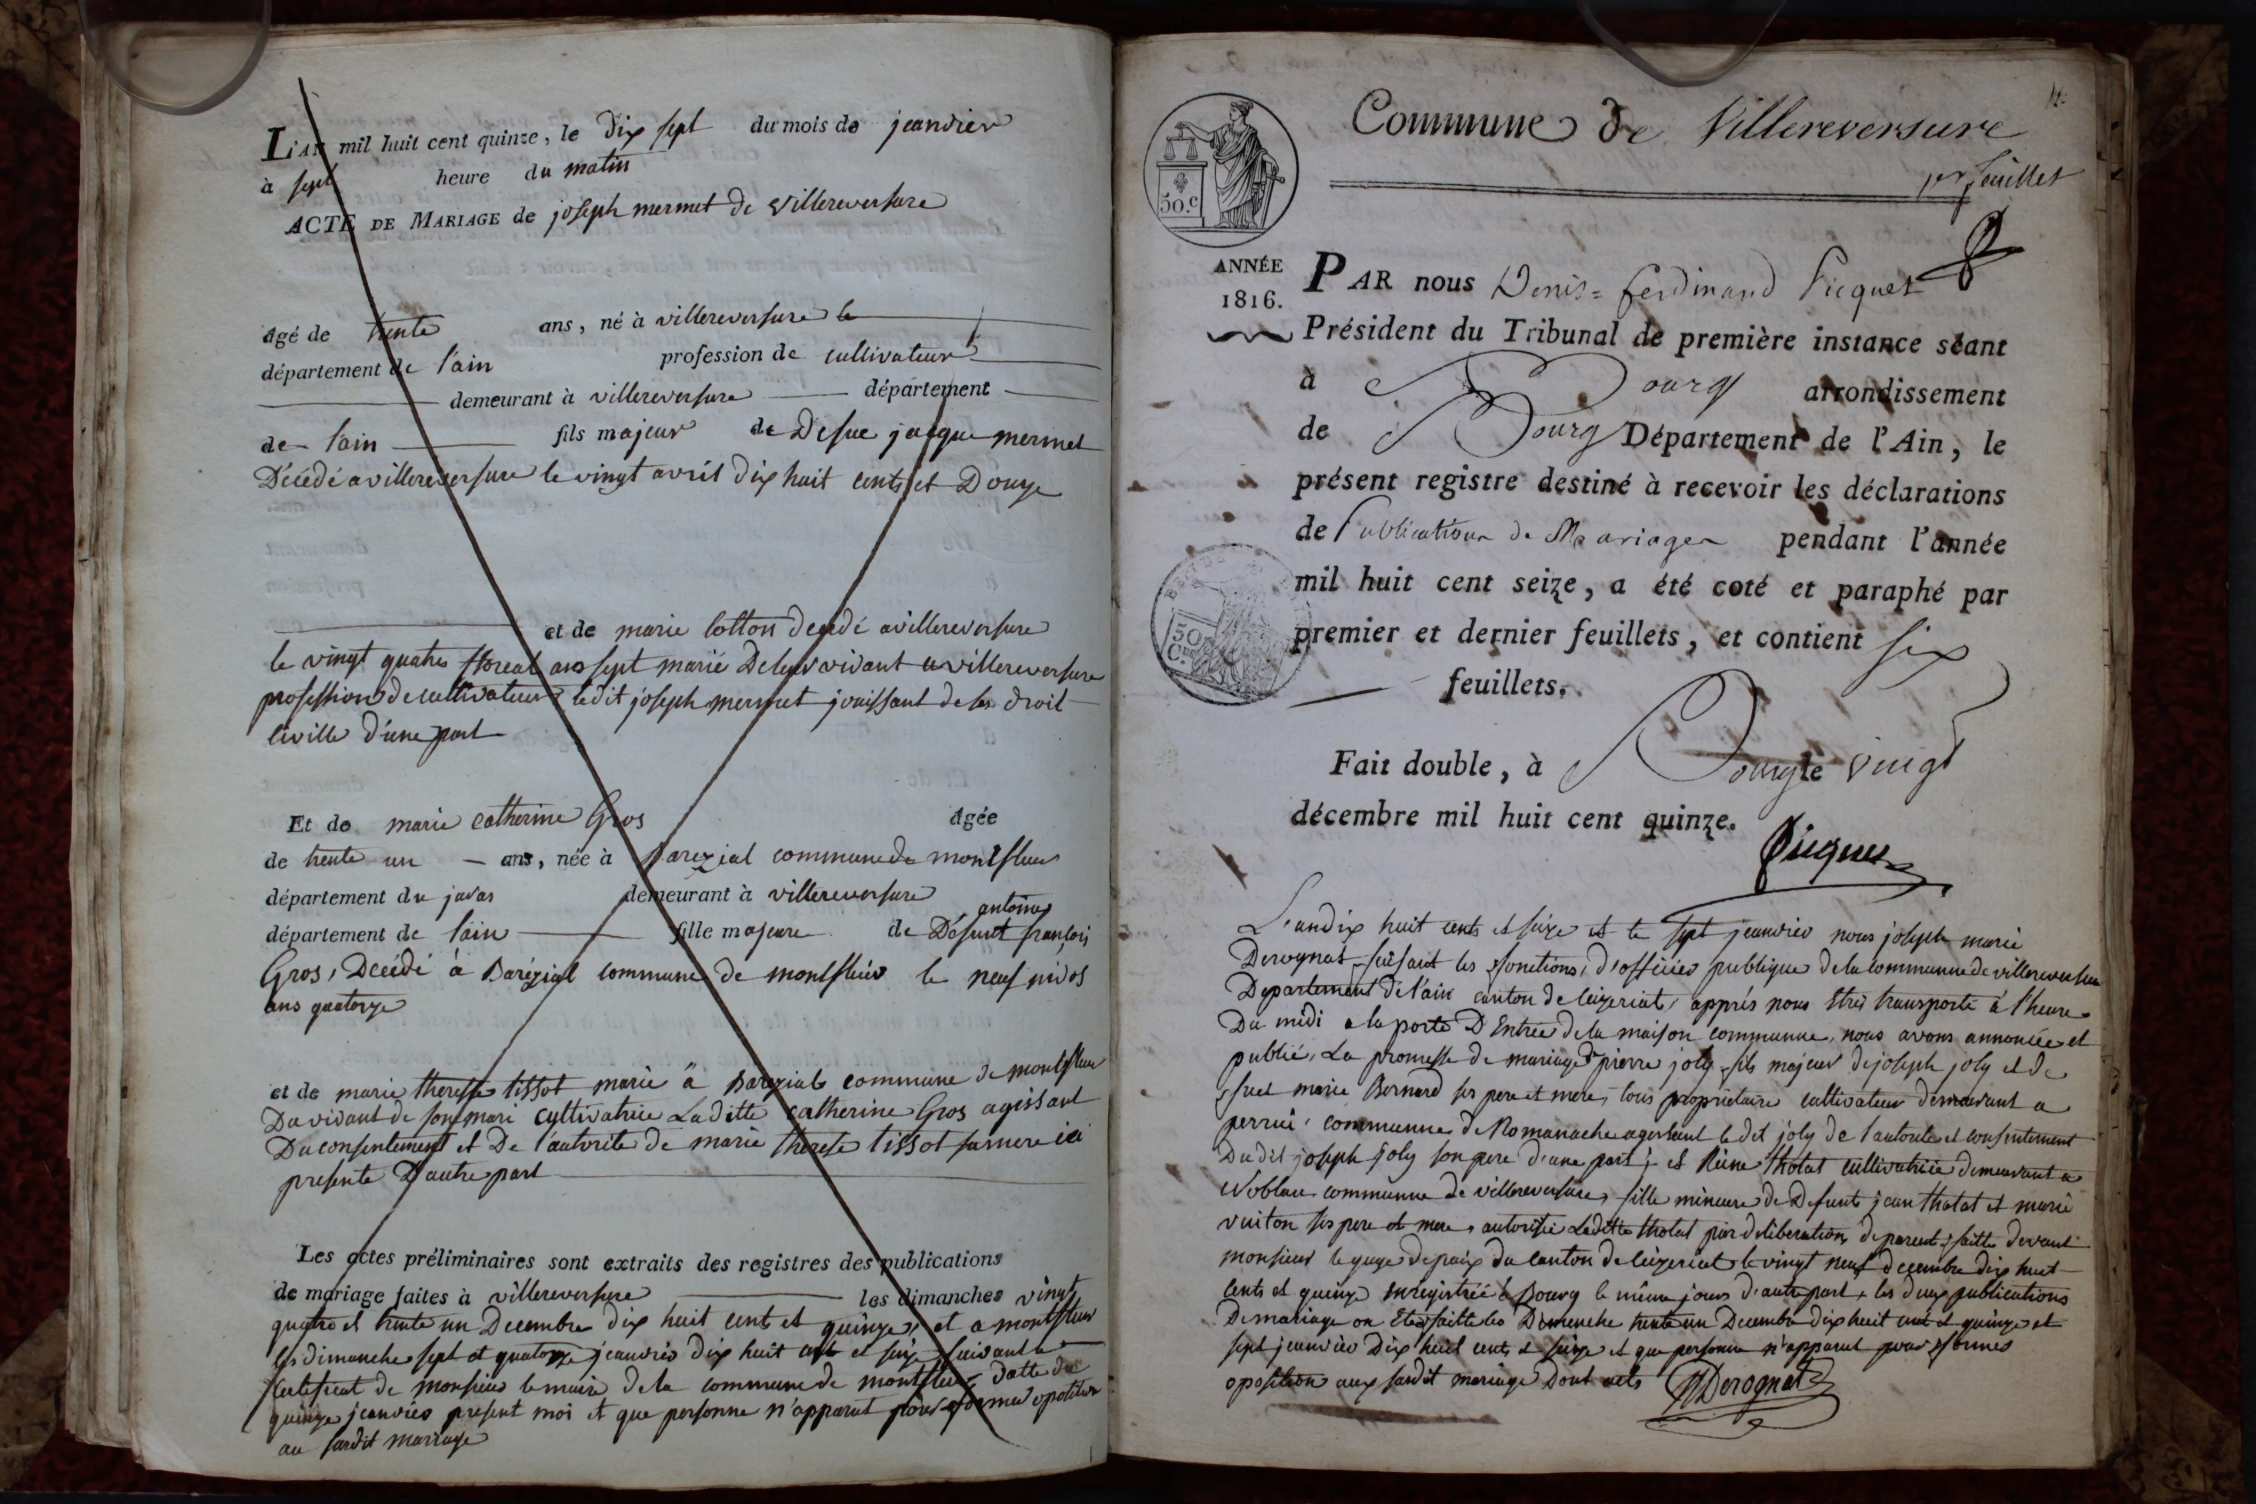 L'AN mil huit cent quinze, le dix sept du mois de jeanvier
à sept heure du matin
ACTE DE MARIAGE de joseph mermet de villereversure
âgé de trente ans, né à villereversure le
département de l'ain profession de cultivateur
demeurant à villereversure département
de l'ain fils majeur de Defue jacque mermet
Décédé a villereversure le vingt avril dix huit cents et Douze
et de marie cotton decedé a villereversure
le vingt quatre floreal ans sept marié De leur vivant a villereversure
profession de cultivateur ledit joseph mermet jouissant de ses droit
civille d'une part
Et de marie catherine Gros âgée
de trente un ans, née à Barezial commune de montfleur
département du juras demeurant à villereversure
antoine
département de l'ain fille majeure de Défunt françois
Gros, Décédé à Barézial commune de montfleur le neuf nivos
ans quatorze
et de marie theresse tissot marié à Barezial commune de montfleur
Du vivant de son mari cultivatrice Laditte catherine Gros agissant
Du consentement et De l'autorité de marie therese tissot sa mere ici
presente D'autre part
Les actes préliminaires sont extraits des registres des publications
de mariage faites à villereversure les dimanches vingt
quatre et trente un Decembre dix huit cents et quinze, et a montfleur
les dimanche sept et quatorze jeanvier dix huit cent et seize suivant le
certificat de monsieur le maire de la commune de montfleur datte du
quinze jeanvier present moi et que personne n'apparut pour former oposition
au susdit mariage
Commune de Villereversure
1er feuillet
50.c
ANNÉE
1816.
PAR nous Denis-ferdinand Picquet
Président du Tribunal de première instance séant
à Bourg arrondissement
de Bourg Département de l'Ain, le
présent registre destiné à recevoir les déclarations
de Publications de Mariages pendant l'année
mil huit cent seize, a été coté et paraphé par
premier et dernier feuillets, et contient six
feuillets.
50
Fait double, à Bourg le vingt
décembre mil huit cent quinze.
Picquet
L'an dix huit cents et seize et le sept jeanvier nous joseph marie
Derognat faisant les fonctions d'officier publique de la commune de villereversure
Departement de l'ain canton de ceizeriat, apprés nous être transporté à l'heure
Du midi a la porte D'Entrée de la maison commune, nous avons annoncée et
publié, La promesse de mariage de pierre joly fils majeur de joseph joly et de
fuet marie Bernard ses pere et mere, tous propriétaire cultivateur demeurant a
perriu, commune de Romanache agissant le dit joly de l'autorité et consentement
Dudit joseph joly son pere d'une part; et Reine tholat cultivatrice demeurant a
Noblan commune de villereversure, fille mineure de Defunt jean tholat et marie
vuiton ses pere et mere, autorisée Laditte tholat par deliberation de parent faitte devant
monsieur le juge de paix du canton de ceizeriat le vingt neuf decembre dix huit
cents et quinze enregistrée à Bourg le même jours d'autre part, les deux publications
De mariage on Eté faitte les Dimenche trente un Decembre dix huit cent et quinze et
sept jeanvier Dix huit cents et seize et que personne n'apparut pour formes
oposition aux susdit mariage Dont acte Derognat